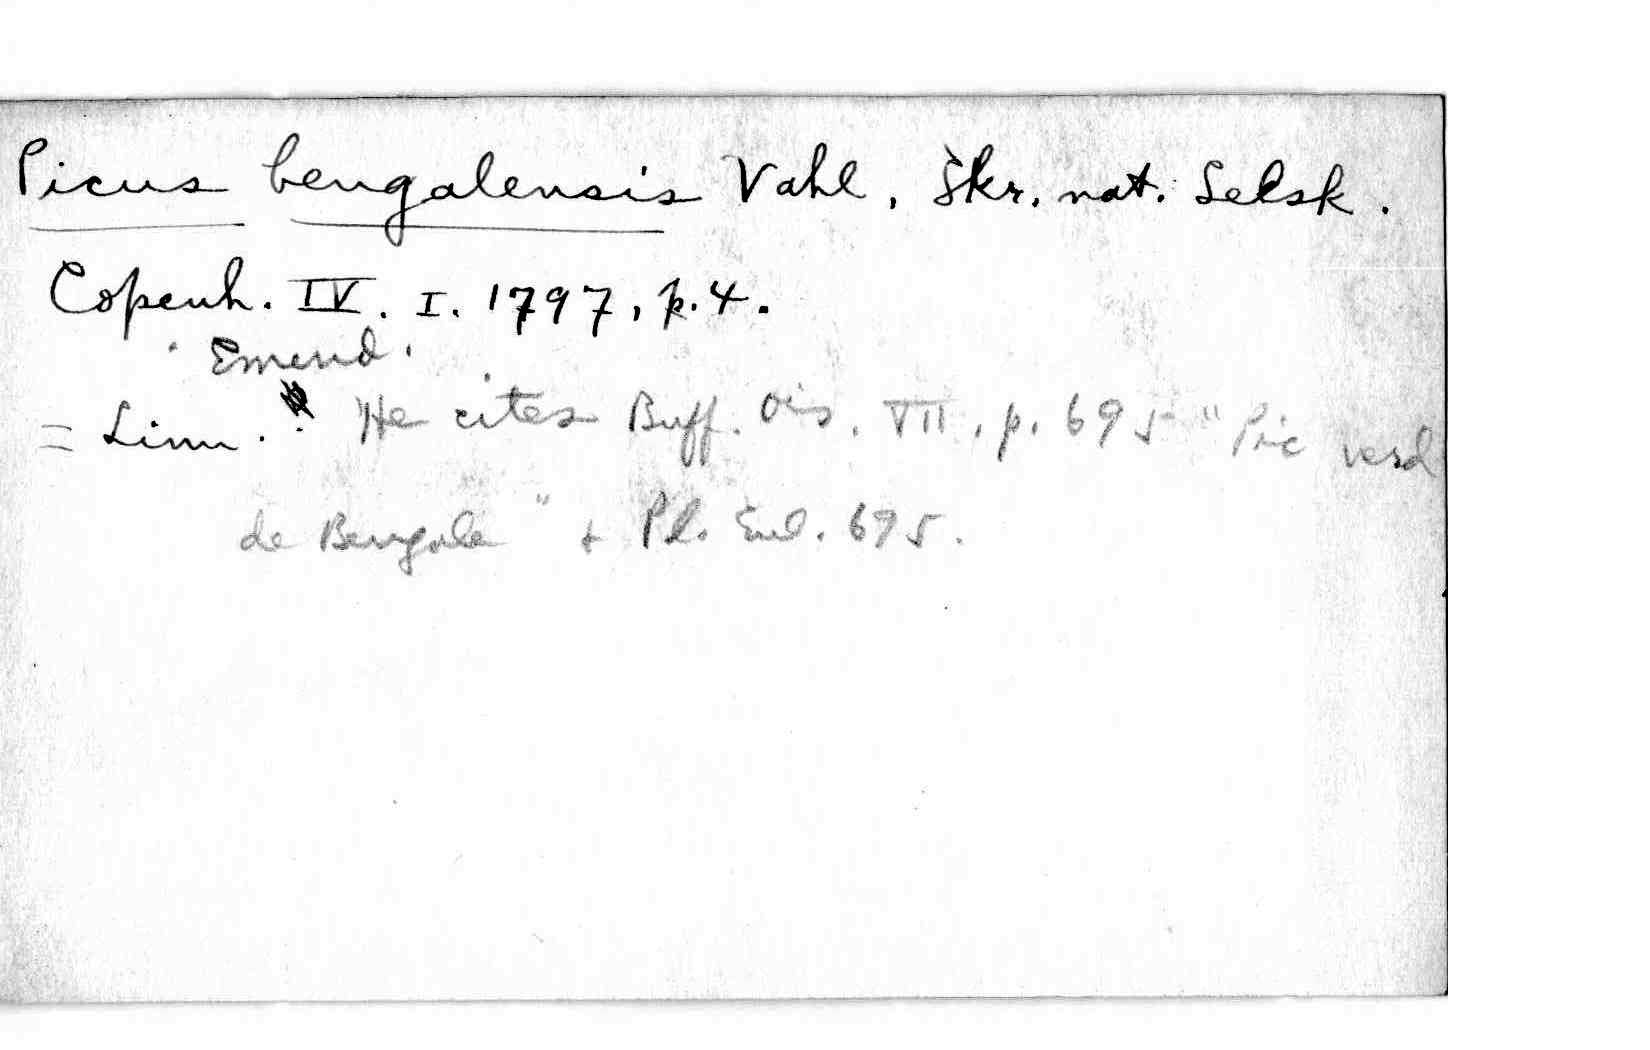 Picus bengalensis Vahl, Skr. nat. Selsk.
Copenh. IV. I. 1797, p. 4.
Emend.
= Linn. He cites Buff. Ois. VII, p. 695 "Pic verd
de Bengale" + Pl. Enl. 695.